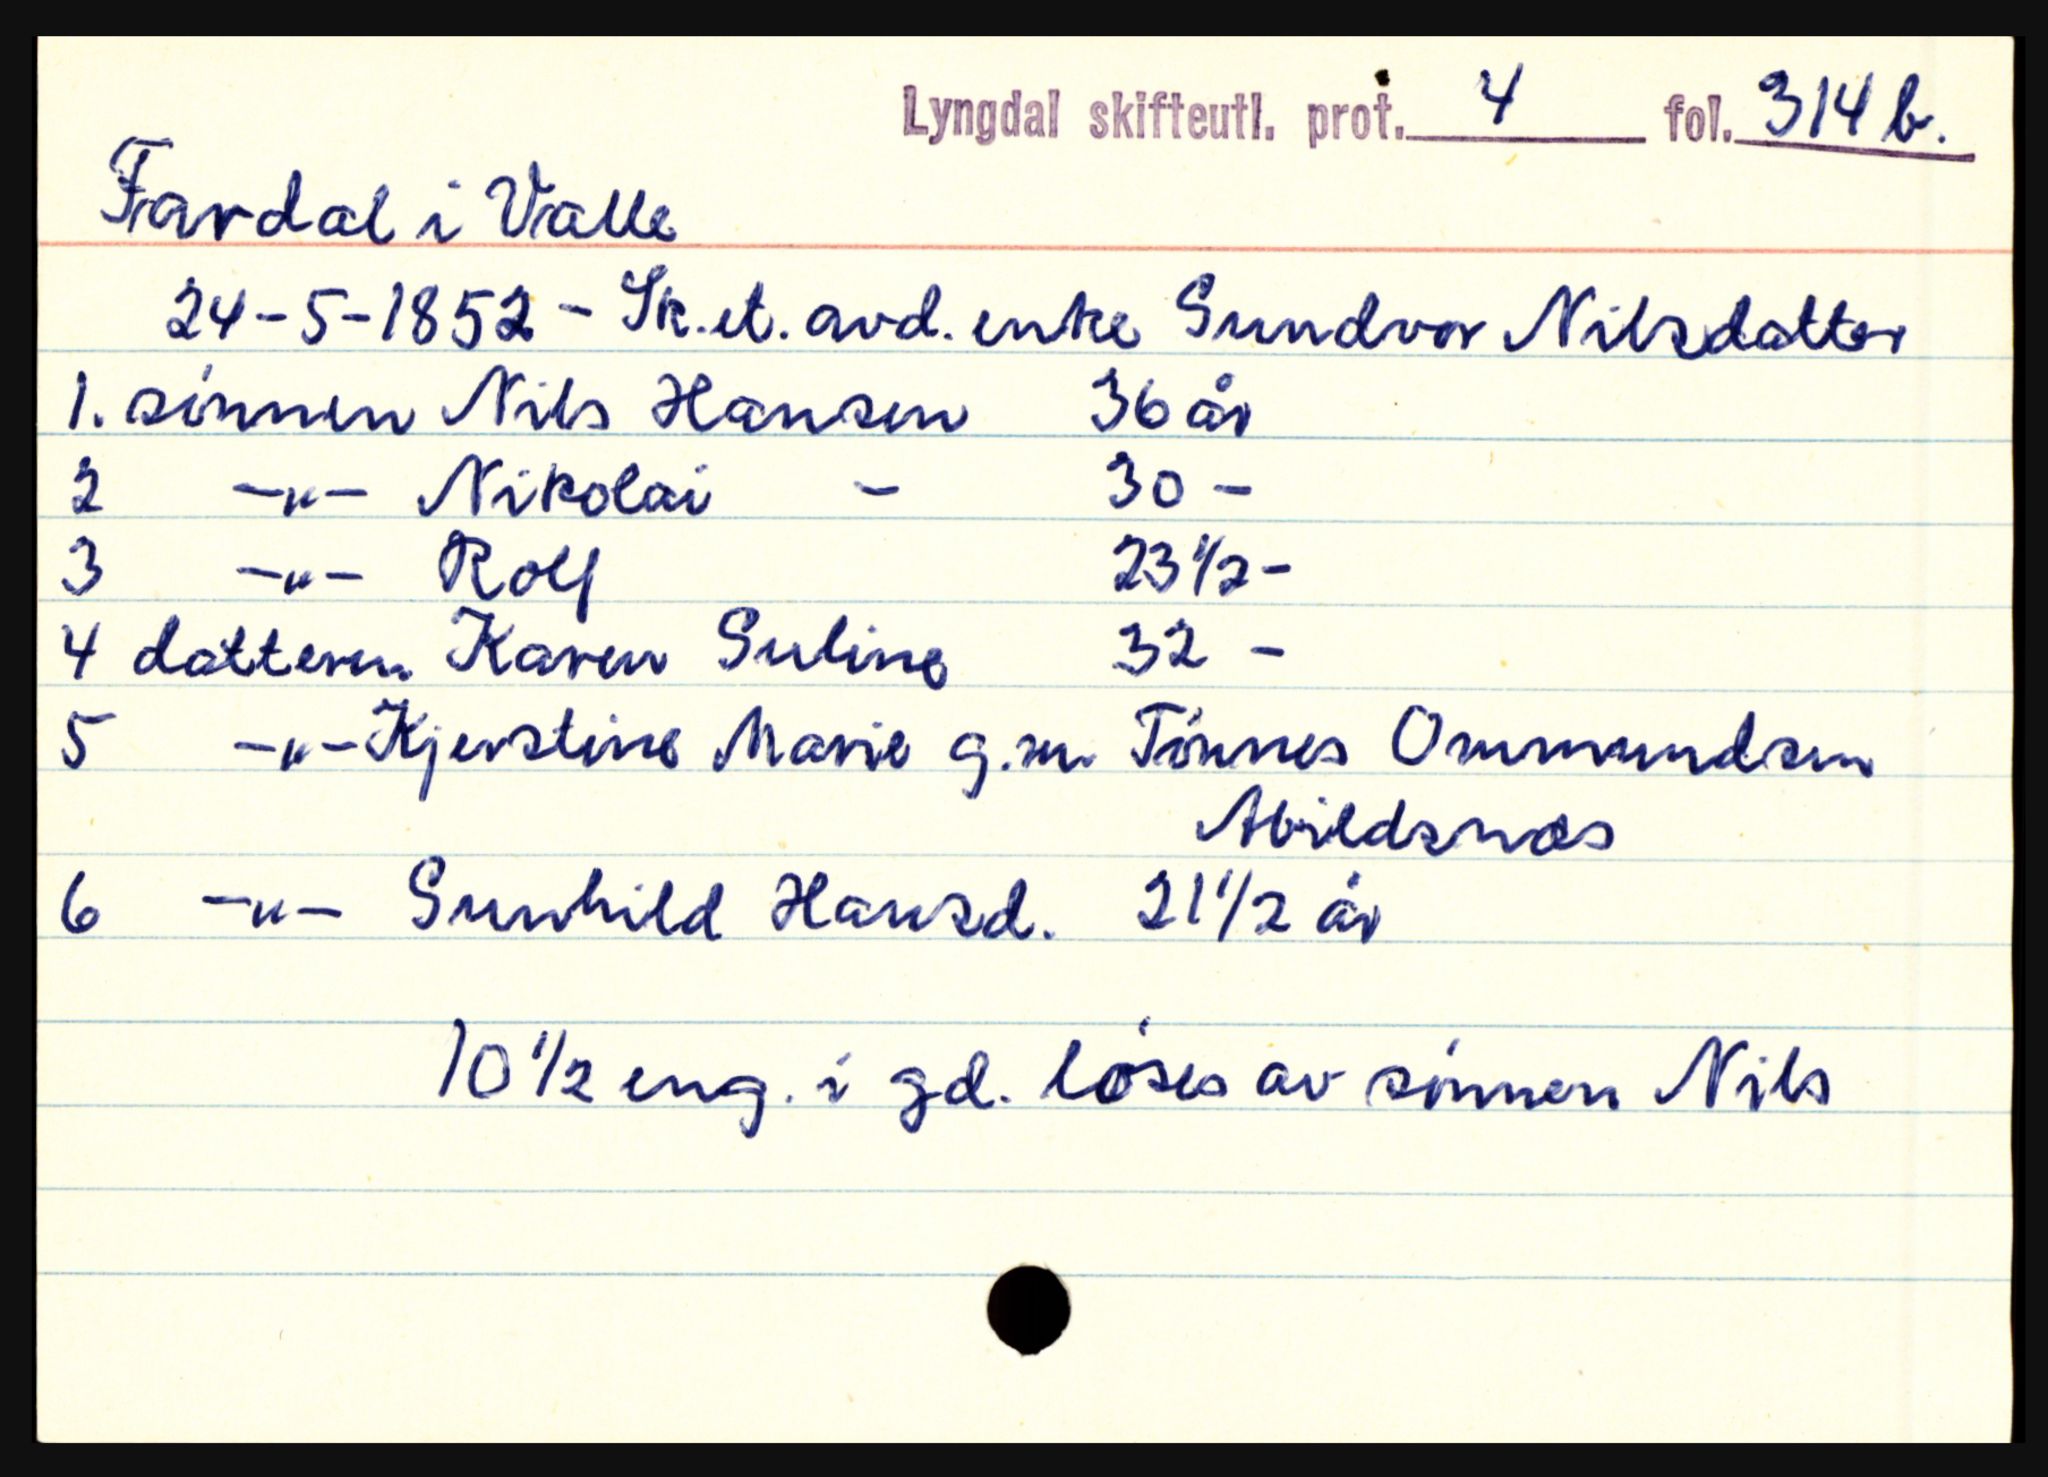 Lyngdal skifteutl. prot. 4 fol. 314 b.
Fardal i Valle
24-5-1852 - Sk. et. avd. enke Gundvor Nilsdatter
1. sönnen Nils Hansen 36 år
2 -"- Nikolai - 30 -
3 -"- Rolf 23 1/2 -
4 datteren Karen Guline 32 -
5 -"- Kjerstine Marie g.m. Tönnes Ommundsen
Abildsnæs
6 -"- Gunhild Hansd. 21 1/2 år
10 1/2 eng. i gd. löses av sönnen Nils